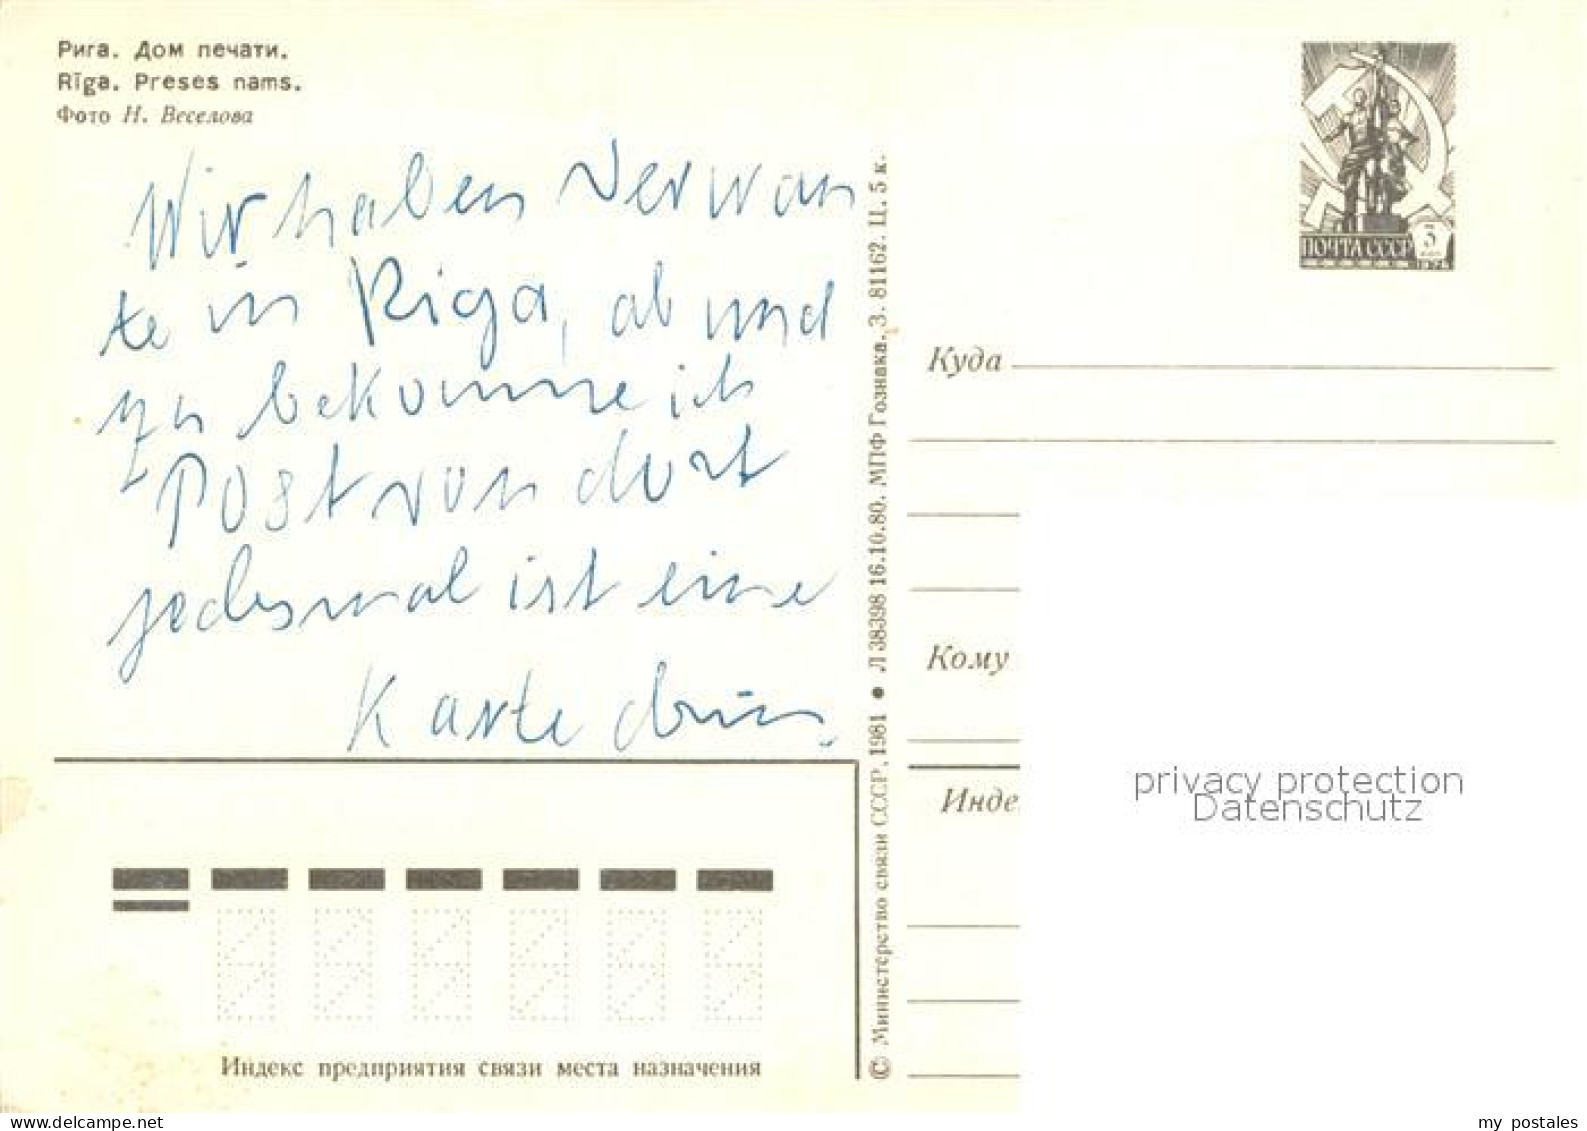 Рига. Дом печати.
Rīga. Preses nams.
Фото Н. Веселова
Wir haben Verwan
te in Riga, ab und
zu bekomme ich
Post von dort
jedesmal ist eine
Karte drin.
Индекс предприятия связи места назначения
© Министерство связи СССР, 1981 ● Л 38398 16.10.80. МПФ Гознака. З. 81162. Ц. 5 к.
ПОЧТА СССР
3
коп
1976
Куда
Кому
Инде
privacy protection
Datenschutz
delcampe.net
my_postales